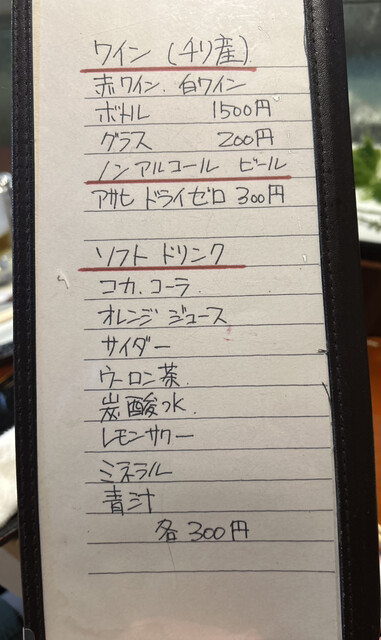 ワイン (チリ産)
赤ワイン. 白ワイン
ボトル 1500円
グラス 200円
ノンアルコール ビール
アサヒ ドライゼロ 300円
ソフト ドリンク
コカ.コーラ
オレンジ ジュース
サイダー
ウーロン茶
炭酸水.
レモンサワー
ミネラル
青汁
各300円